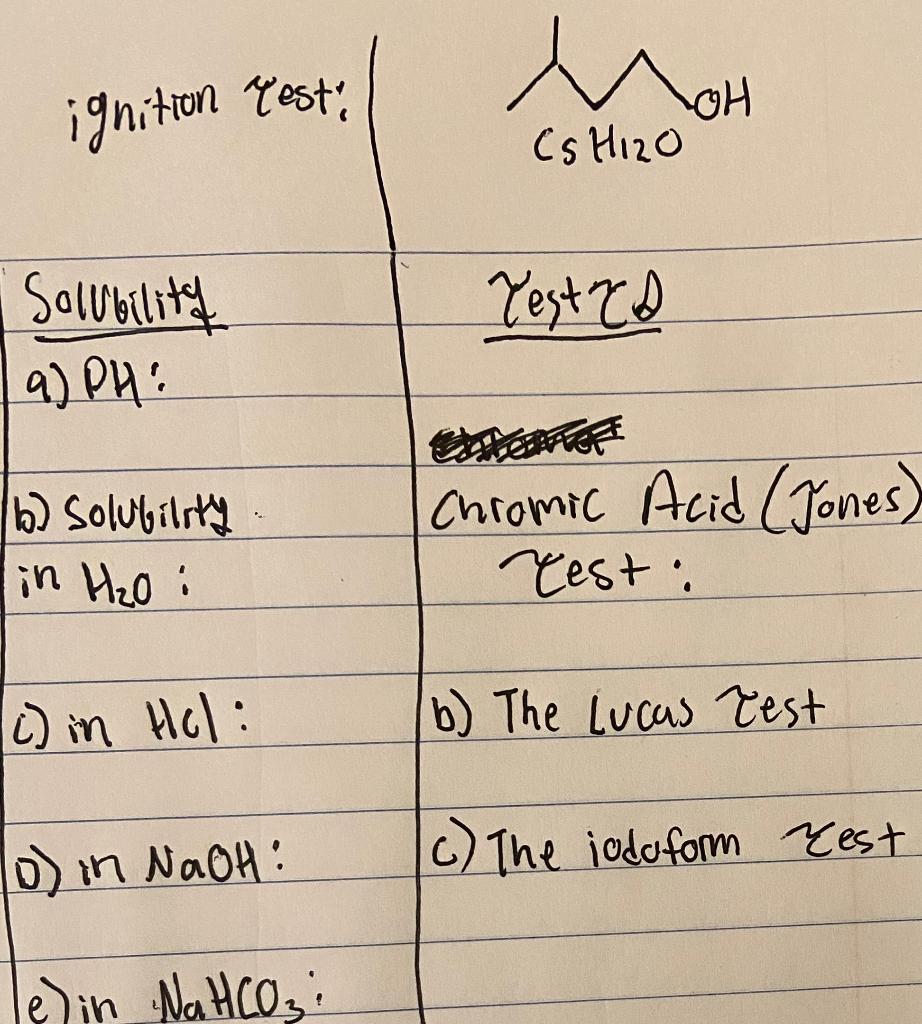 ignition Test:
OH
C5H12O
Solubility
Test ID
a) PH:
b) Solubility
in H2O:
Chromic Acid (Jones)
Test:
c) in HCl:
b) The Lucas Test
D) in NaOH:
c) The iodoform Test
e) in NaHCO3: